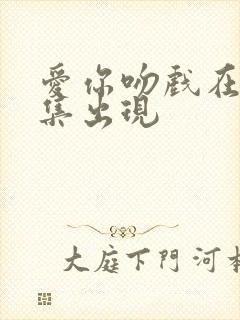 愛你吻戲在
集出現
大庭下門河本